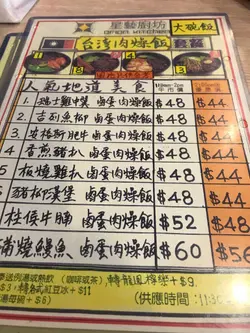 星藝廚坊
大碗飯
台灣肉燥飯
人氣地道美食
1. 瑞士雞中翼 鹵蛋肉燥飯 $48 $44
2. 吉列魚柳 鹵蛋肉燥飯 $48 $44
3. 安格斯肥牛 鹵蛋肉燥飯 $48 $44
4. 香煎豬扒 鹵蛋肉燥飯 $48 $44
板燒雞扒 鹵蛋肉燥飯 $48 $44
鹵蛋肉燥飯 $48 $44
柱侯牛腩 鹵蛋肉燥飯 $52 $48
蒲燒鰻魚 鹵蛋肉燥飯 $60 $56
送例湯或熱飲 (咖啡或茶)
+$9
+$3, 轉 紅豆冰 +$11
+$6)
(供應時間: 11:30